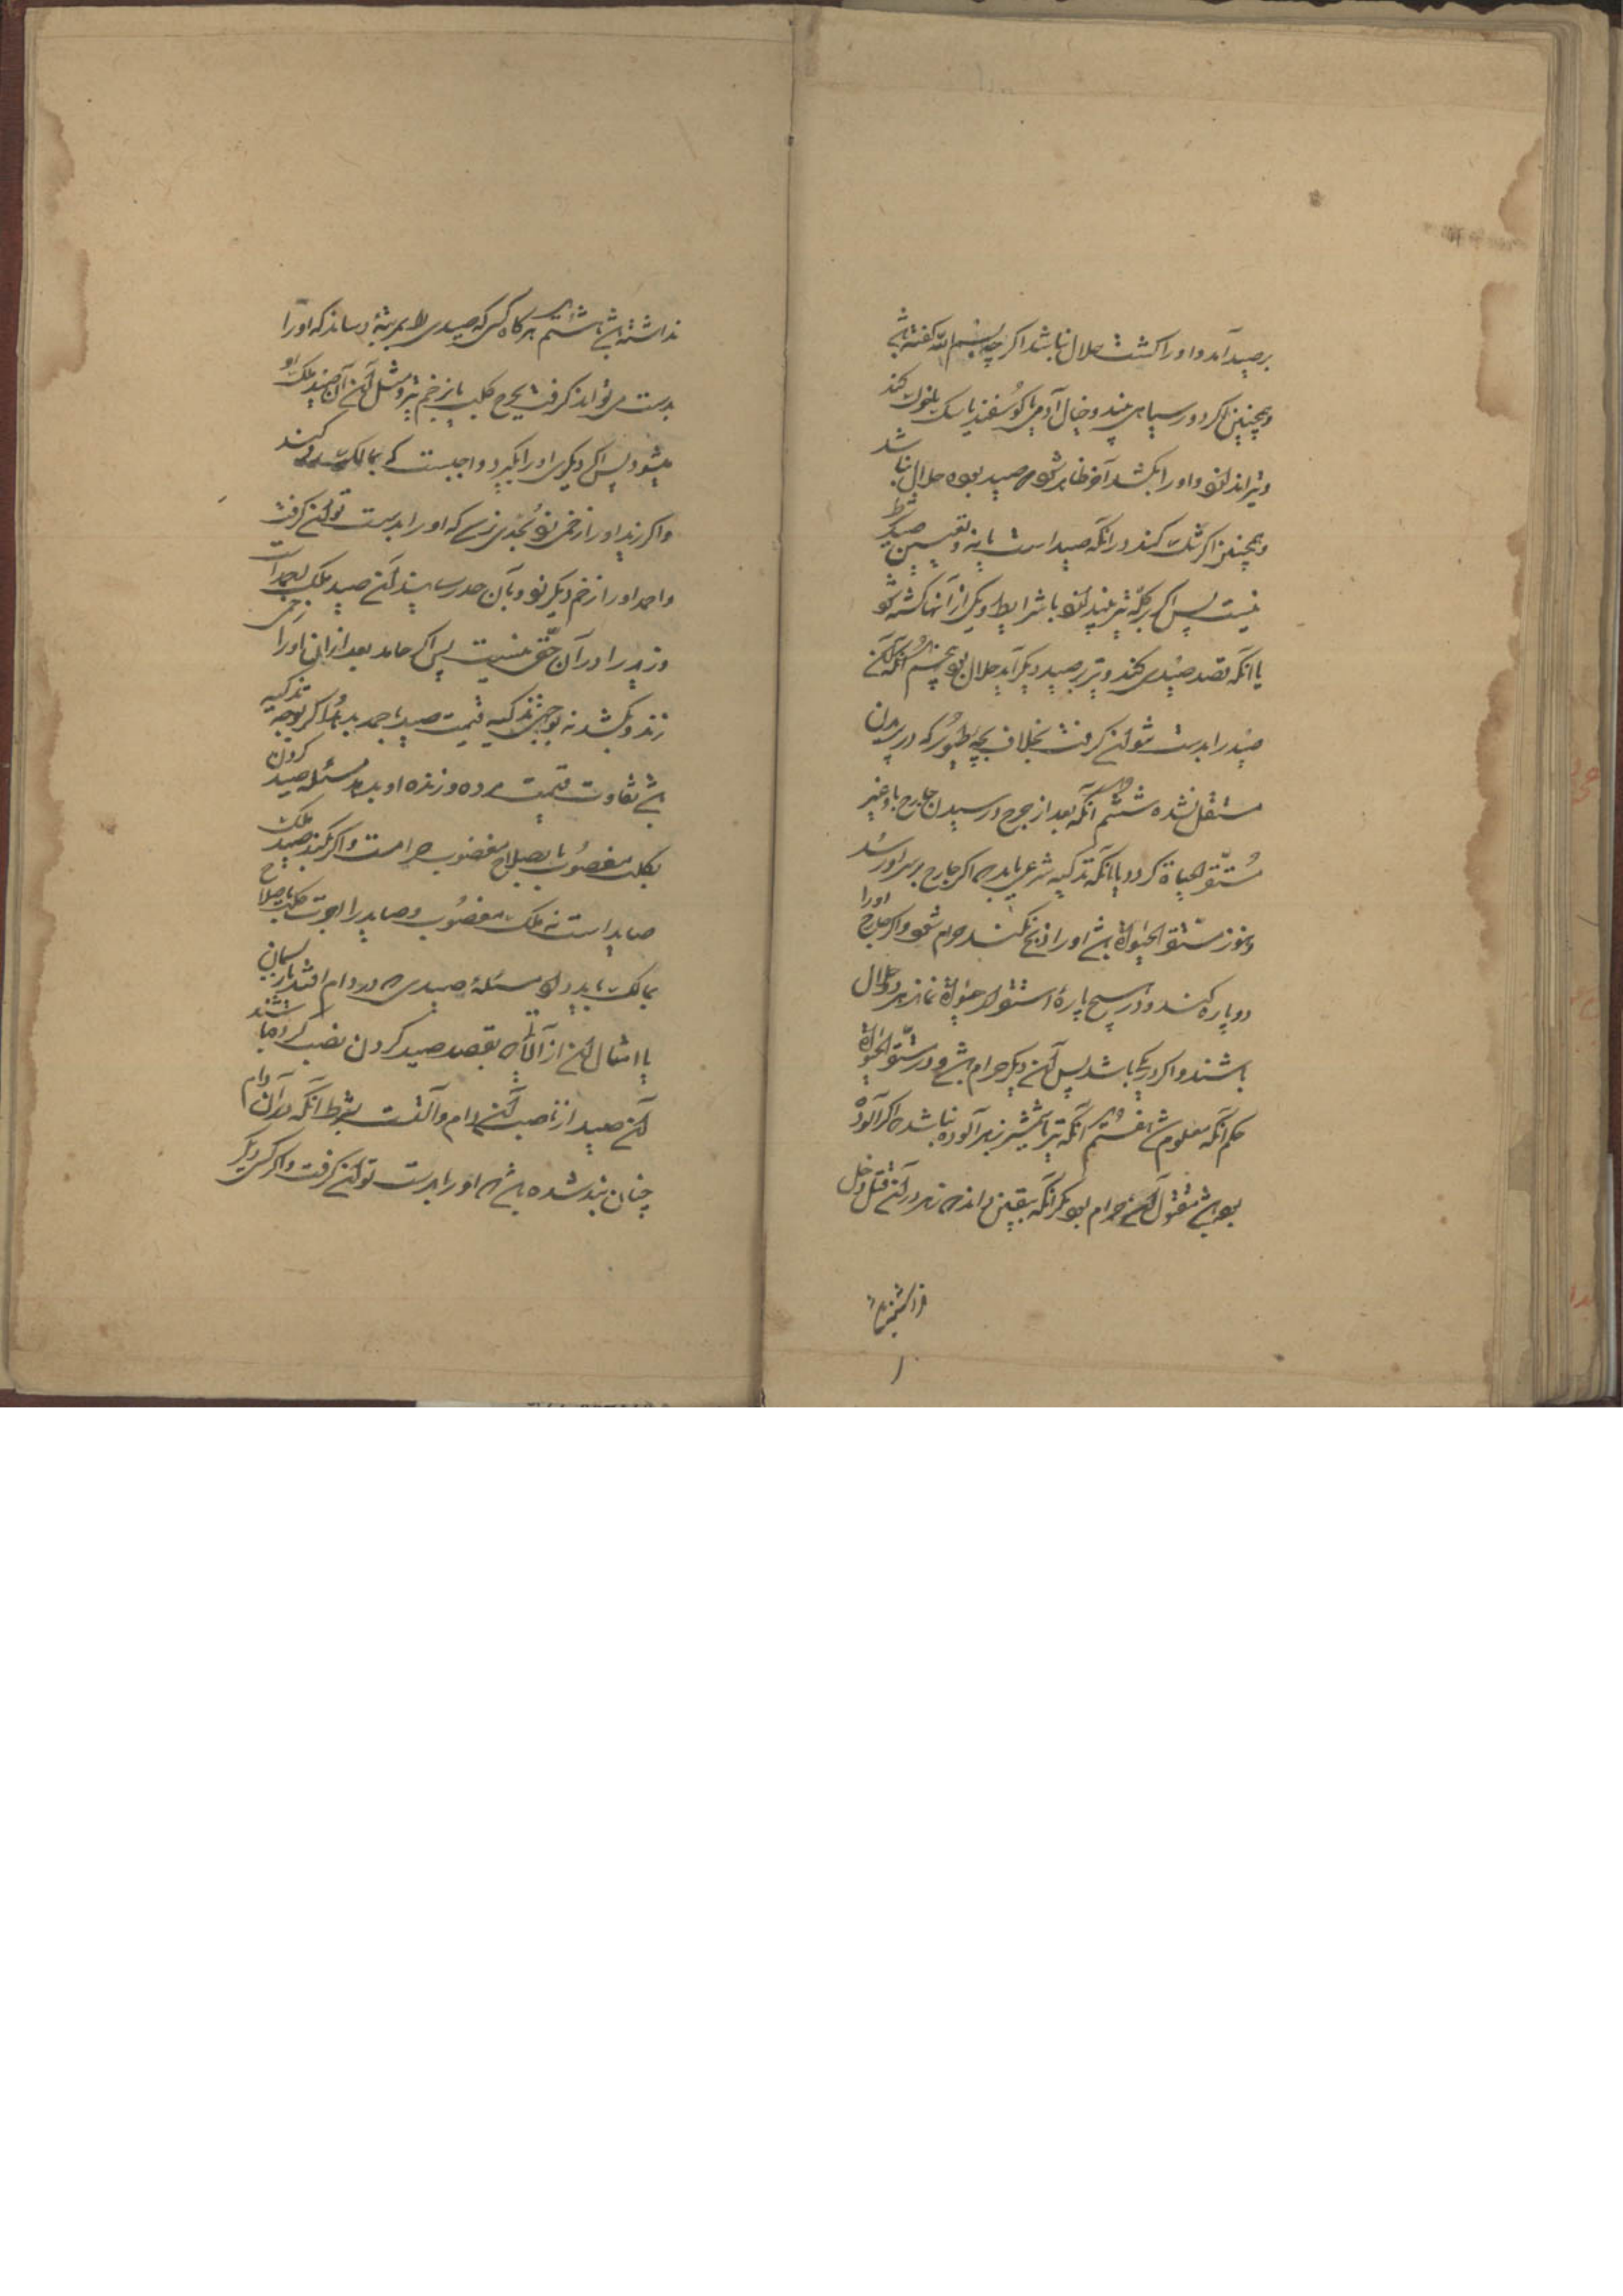 بر صید آمد و او را کشت حلال نباشد اگر چه بسم الله گفته باشد
و همچنین اگر در سیاهی بیند و خیال آدمی یا گوسفند یا سک کند
و تیر اندازد و او را بکشد آخر ظاهر شود که صید بوده حلال نباشد
و همچنین اگر شک کند در آنکه صید است یا نه و تعیین صید شرط
نیست پس اگر بر کله تیر بیندازد با شرایط و یکی از آنها کشته شود
یا آنکه قصد صیدی کند و تیر بر صید دیگر آید حلال بود پنجم آنکه آن
صید را بدست نتوان گرفت بخلاف بچه طیور که در پریدن
مستقل نشده ششم آنکه بعد از جرح و رسیدن جارح باو غیر
مستقر الحیاة گردد یا آنکه تذکیه شرعی یابد چه اگر جارح بر سر او رسد
و هنوز مستقر الحیوة باشد او را ذبح نکند حرام شود و اگر جارح او را
دو پاره کند و در هیچ پاره استقرار حیوة نماند هر دو حلال
باشند و اگر در یکی باشد پس آن دیگر حرام باشد و در مستقر الحیوة
حکم آنکه معلوم شد هفتم آنکه تیر یا شمشیر زهر آلوده نباشد چه اگر آلوده
بوده باشد مقتول آن حرام بود مگر آنکه بیقین داند که زهر در آن قتل دخل
نداشته باشد هشتم هر گاه کسی که صیدی را بمرتبه رساند که او را
بدست می تواند گرفت بجرح کلب یا بزخم تیر و مثل آن آن صید ملک او
میشود پس اگر دیگری او را بگیرد واجبست که بمالک رد کند
و اگر زید او را زخمی زد و بحدی نرسید که او را بدست توان گرفت
و احمد او را زخم دیگر زد و بآن حد رسانید آن صید ملک احمد است
و زید را در آن حقی نیست پس اگر حامد بعد از آن او را زخمی
زند و بکشد نه بوجهی تذکیه قیمت صید با احمد بدهد و اگر بوجه تذکیه
باشد تفاوت قیمت مرده و زنده او بدهد مسئله صید کردن
بکلب مغصوب یا بصلاح مغصوب حرامست و اگر بکند صید ملک
صاید است نه ملک مغصوب و صاید را اجرت کلب یا صلاح
بمالک باید داد مسئله صیدی که در دام افتد یا ریسمانی
یا امثال آن از آلات که بقصد صید کردن نصب کرده باشند
آن صید از ناصب آن دام و آلتست بشرط آنکه در آن دام
چنان بند شده باشد که او را بدست توان گرفت و اگر کسی دیگر